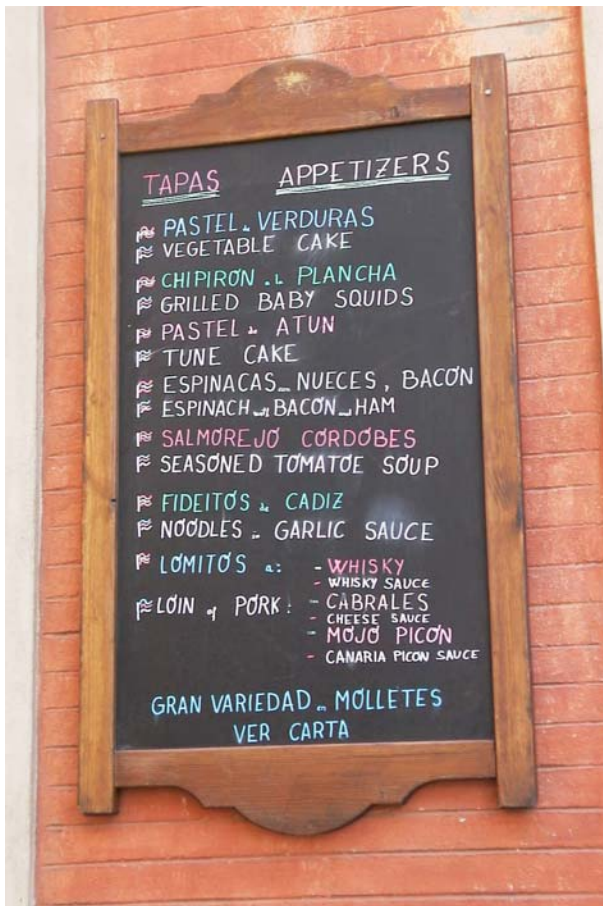 TAPAS APPETIZERS
PASTEL de VERDURAS
VEGETABLE CAKE
CHIPIRON a la PLANCHA
GRILLED BABY SQUIDS
PASTEL de ATUN
TUNE CAKE
ESPINACAS con NUECES, BACON
ESPINACH with BACON and HAM
SALMOREJO CORDOBES
SEASONED TOMATOE SOUP
FIDEITOS de CADIZ
NOODLES in GARLIC SAUCE
LOMITOS al: - WHISKY
- WHISKY SAUCE
LOIN of PORK: - CABRALES
- CHEESE SAUCE
- MOJO PICON
- CANARIA PICON SAUCE
GRAN VARIEDAD en MOLLETES
VER CARTA